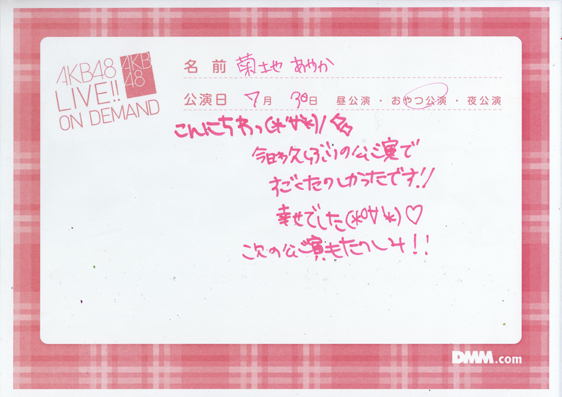 AKB48
LIVE!!
ON DEMAND
AKB
48
名前 菊地 あやか
公演日 7月 30日 昼公演・おやつ公演・夜公演
こんにちわっ(*'∀'*)/
今日久しぶりの公演で
すごくたのしかったです!!
幸せでした(*°∀*)♡
次の公演もたのしみ!!
DMM.com